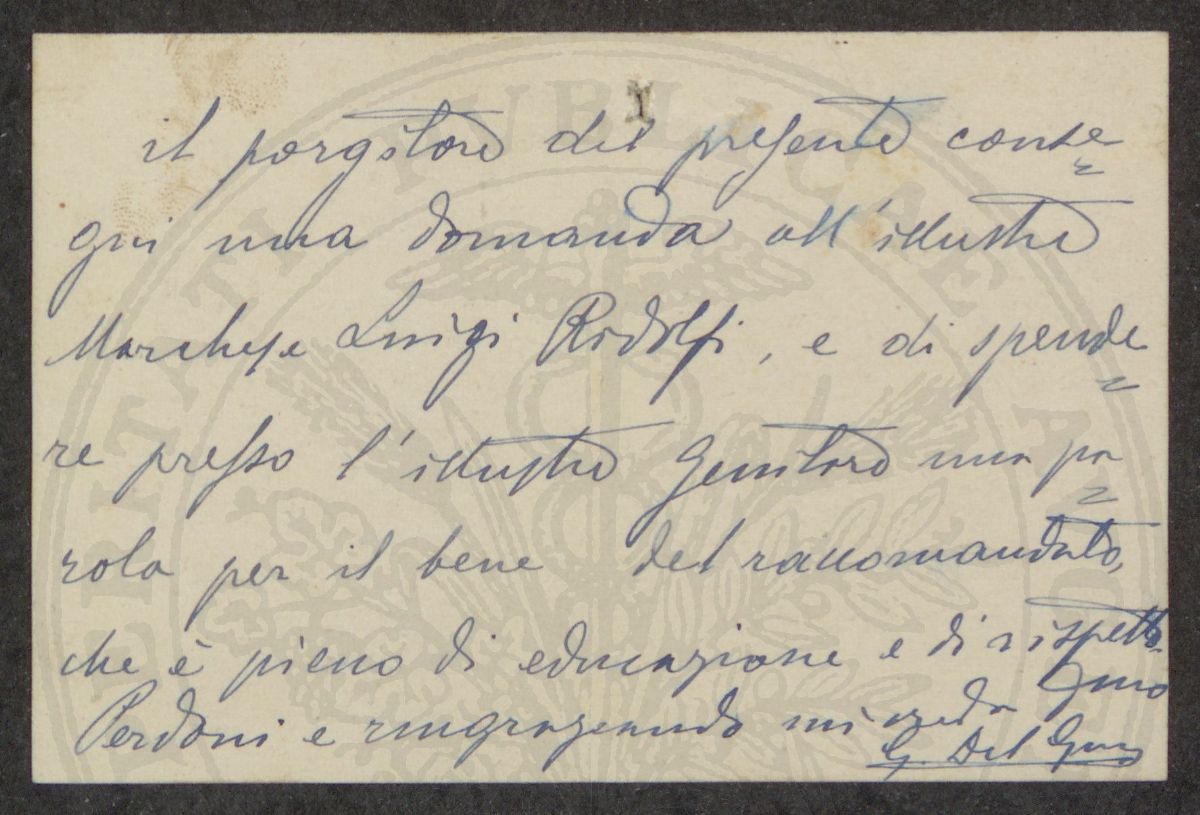 il porgitore del presente conse=
gni una domanda all'illustre
Marchese Luigi Ridolfi, e di spende=
re presso l'illustre Genitore una pa=
rola per il bene del raccomandato,
che è pieno di educazione e di rispetto.
Perdoni e ringraziando mi creda Suo
G. Del